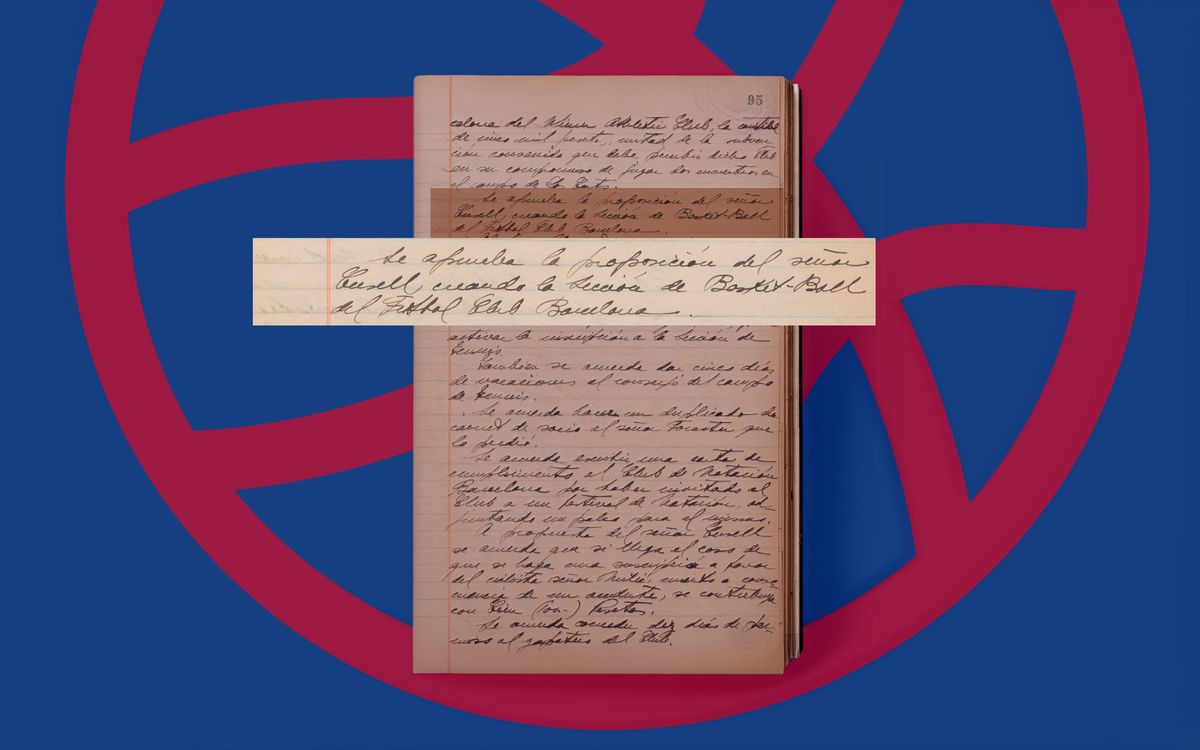 95
celona del Wiener Athletic Club, la cantidad
de cinco mil pesetas, mitad de la subven-
ción convenida que debe percibir dicho Club
en su compromiso de jugar dos encuentros en
el campo de Las Corts.
Se aprueba la proposición del señor
Cusell, creando la Sección de Basket-Ball
del Futbol Club Barcelona.
Se aprueba la proposición del señor
Cusell, creando la Sección de Basket-Ball
del Futbol Club Barcelona.
activar la inscripción a la Sección de
Tennis.
También se acuerda dar cinco días
de vacaciones al conserje del campo
de Tennis.
Se acuerda hacer un duplicado de
carnet de socio al señor que
lo perdió.
Se acuerda escribir una carta de
cumplimiento al Club de Natación
Barcelona por haber invitado al
Club a un festival de Natación, ad-
juntando un palco para el mismo.
A propuesta del señor Cusell
se acuerda que si llega el caso de
que se haga una suscripción a favor
del señor muerto a conse-
cuencia de un accidente, se contribuya
con Cien (100.-) Pesetas.
Se acuerda conceder diez días de per-
miso al zapatero del Club.